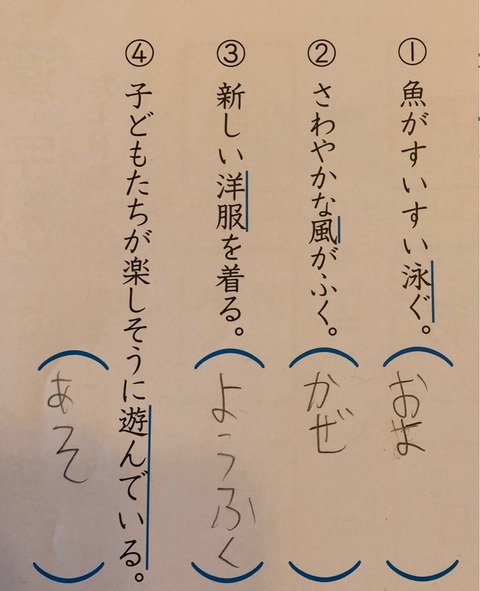 ① 魚がすいすい泳ぐ。
(およ)
② さわやかな風がふく。
(かぜ)
③ 新しい洋服を着る。
(ようふく)
④ 子どもたちが楽しそうに遊んでいる。
(あそ)